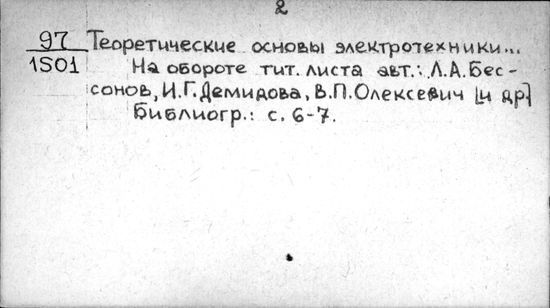 2
97 Теоретические основы электротехники...
1501 На обороте тит. листа авт.: Л.А.Бес-
сонов, И.Г.Демидова, В.П.Олексевич [и др]
Библиогр.: с. 6-7.